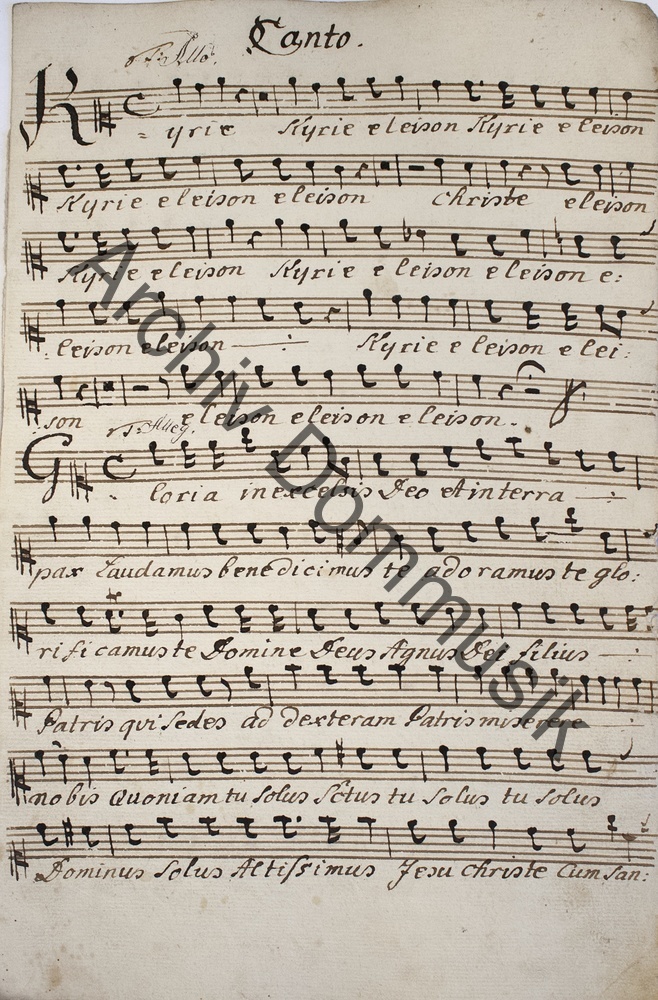 Canto.
T: Allo.
Kyrie Kyrie eleison Kyrie eleison
Kyrie eleison eleison Christe eleison
Kyrie eleison Kyrie eleison eleison e:
:leison eleison Kyrie eleison elei:
:son eleison eleison eleison.
T: Alleg.
Gloria in excelsis Deo et in terra
pax Laudamus benedicimus te adoramus te glo:
rificamus te Domine Deus Agnus Dei filius
Patris qui sedes ad dexteram Patris miserere
nobis Quoniam tu solus Sctus tu solus tu solus
Dominus solus Altissimus Jesu Christe Cum San:
Archiv Dommusik